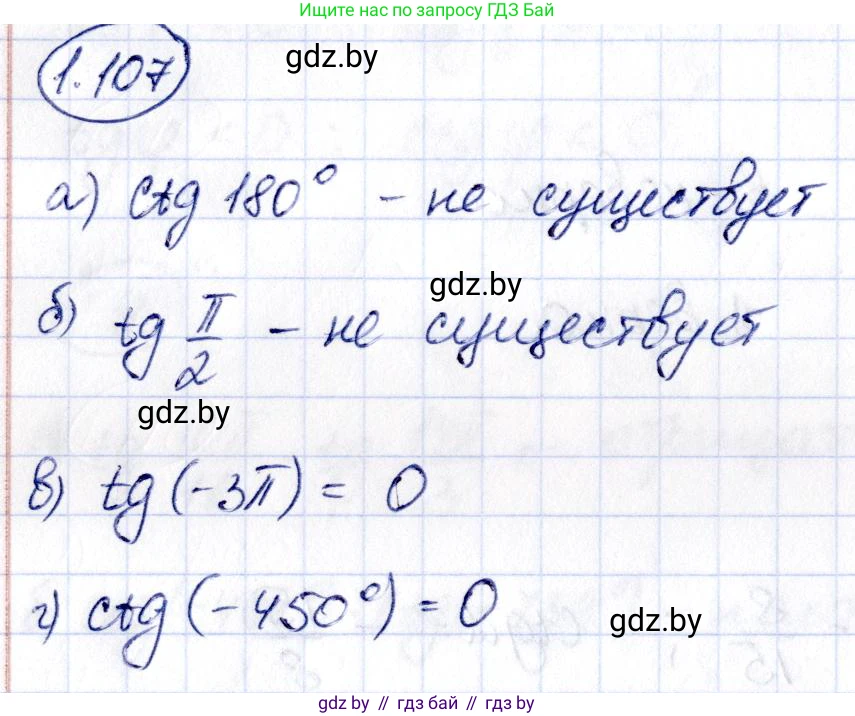 Ищите нас по запросу ГДЗ Бай
1.107
gdz.by
а) ctg 180° - не существует
gdz.by
б) tg π/2 - не существует
gdz.by
в) tg (-3π) = 0
г) ctg (-450°) = 0
gdz.by
gdz.by // гдз бай // гдз by